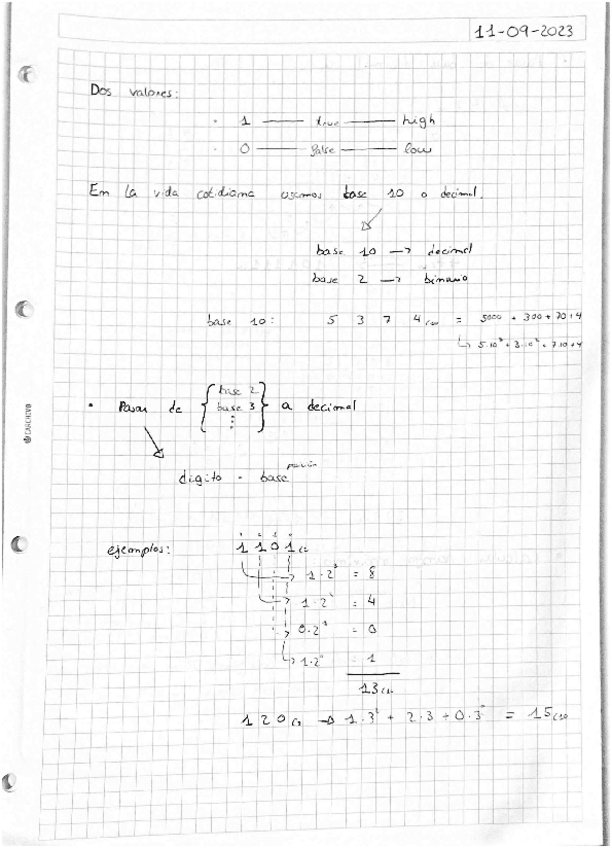 11-09-2023
Dos valores:
· 1 —— true —— high
· 0 —— false —— low
En la vida cotidiana usamos base 10 o decimal.
base 10 → decimal
base 2 → binario
base 10: 5 3 7 4 (10 = 5000 + 300 + 70 + 4
↳ 5·10³ + 3·10² + 7·10 + 4
• Pasar de { base 2 base 3 ⋮ } a decimal
digito · base^posición
ejemplos: 1 1 0 1 (2
1·2³ = 8
1·2² = 4
0·2¹ = 0
1·2⁰ = 1
13 (10
1 2 0 (3 → 1·3² + 2·3 + 0·3⁰ = 15 (10